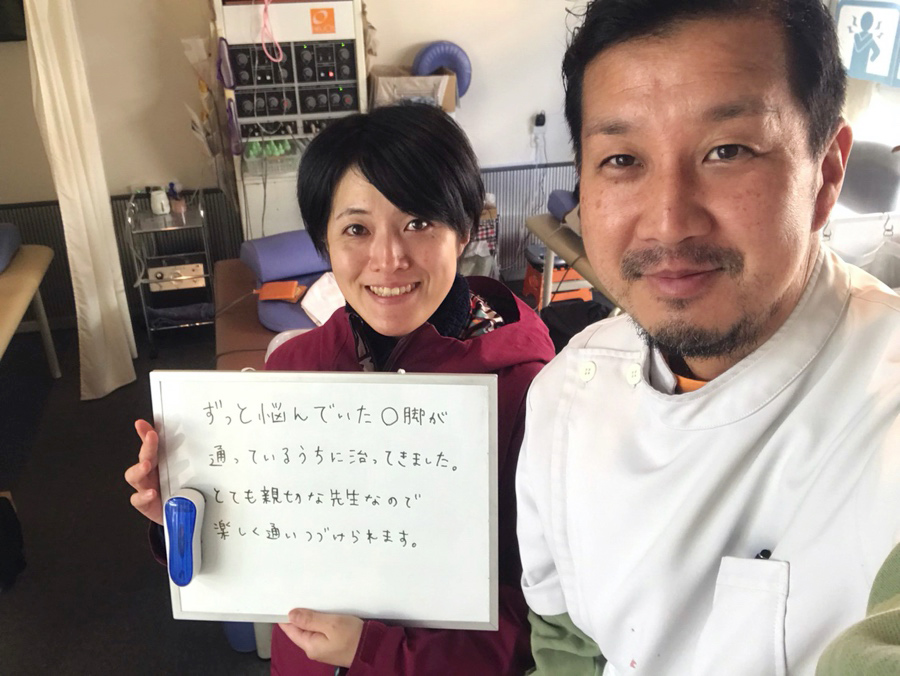 ずっと悩んでいたO脚が
通っているうちに治ってきました。
とても親切な先生なので
楽しく通いつづけられます。